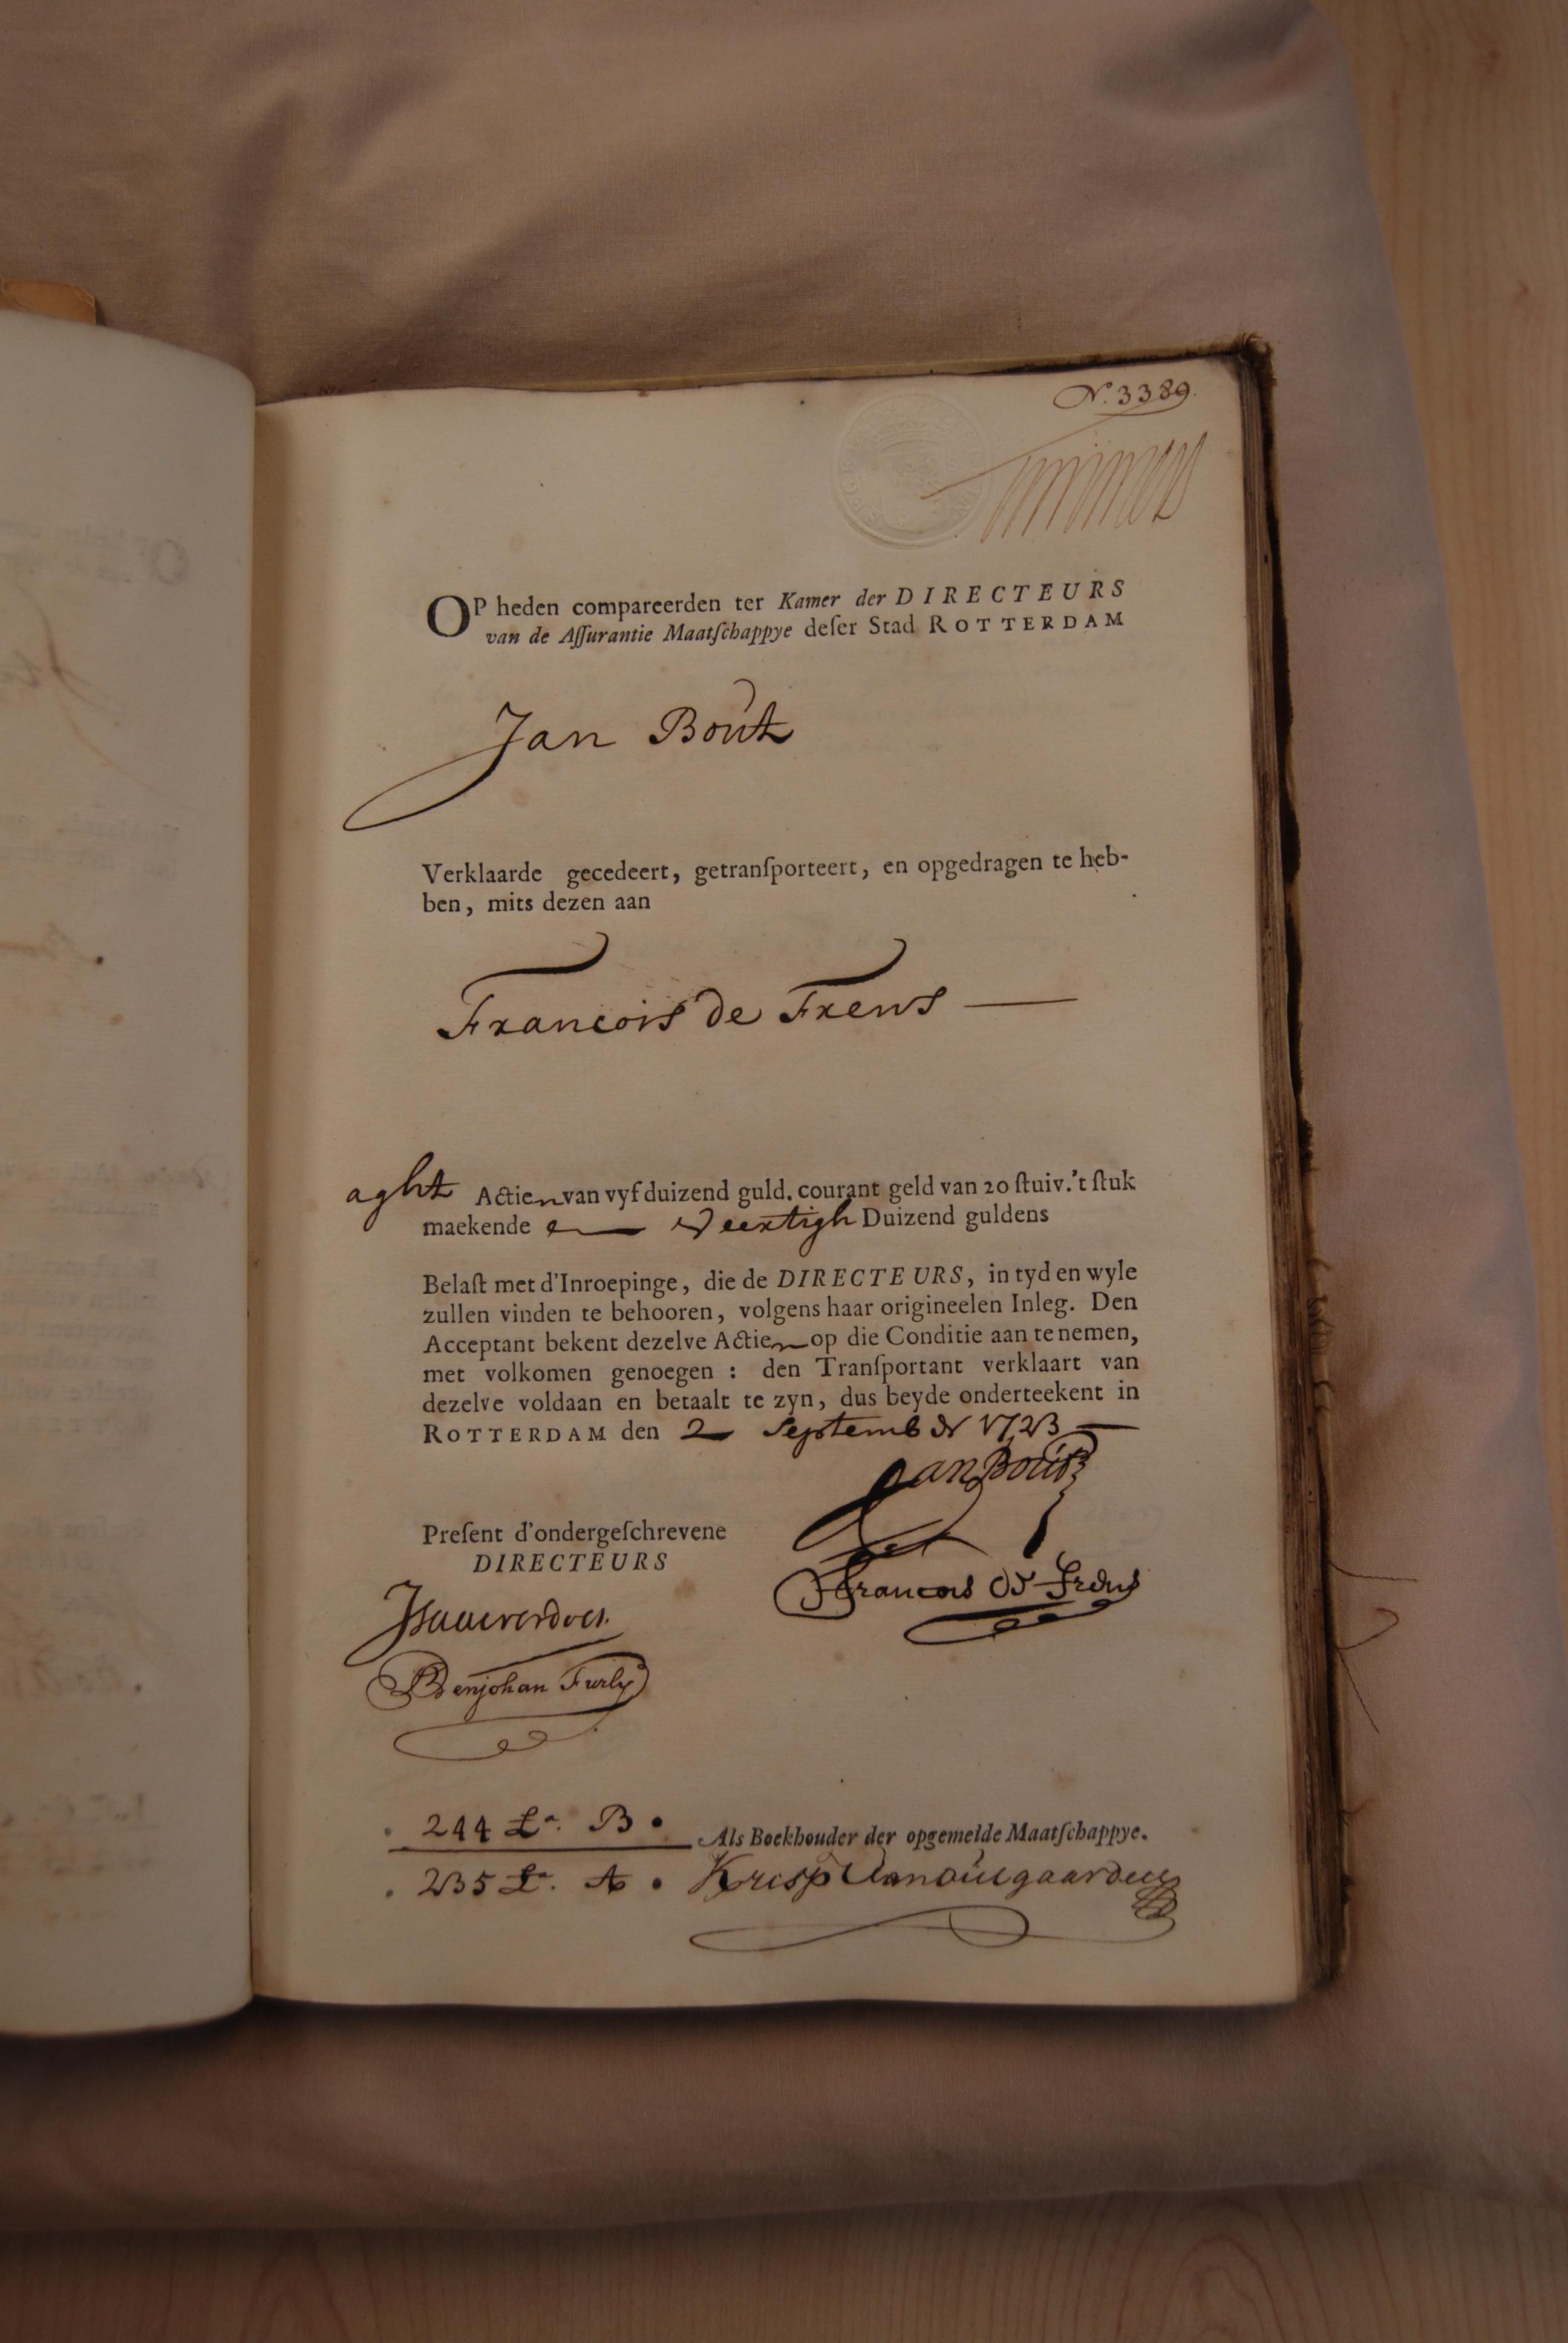 N. 3389.
OP heden compareerden ter Kamer der DIRECTEURS
van de Aſſurantie Maatſchappye deſer Stad ROTTERDAM
Jan Boút
Verklaarde gecedeert, getranſporteert, en opgedragen te heb-
ben, mits dezen aan
Francois de Frens
aght Actien van vyf duizend guld. courant geld van 20 ſtuiv. 't ſtuk
maekende en Veertigh Duizend guldens
Belaſt met d'Inroepinge, die de DIRECTEURS, in tyd en wyle
zullen vinden te behooren, volgens haar origineelen Inleg. Den
Acceptant bekent dezelve Actien op die Conditie aan te nemen,
met volkomen genoegen : den Tranſportant verklaart van
dezelve voldaan en betaalt te zyn, dus beyde onderteekent in
ROTTERDAM den 2 September 1723
Jan Boút
Preſent d'ondergeſchrevene
DIRECTEURS
Francois De Frens
Benjohan Furly
244 La. B.
Als Boekhouder der opgemelde Maatſchappye.
235 La. A.